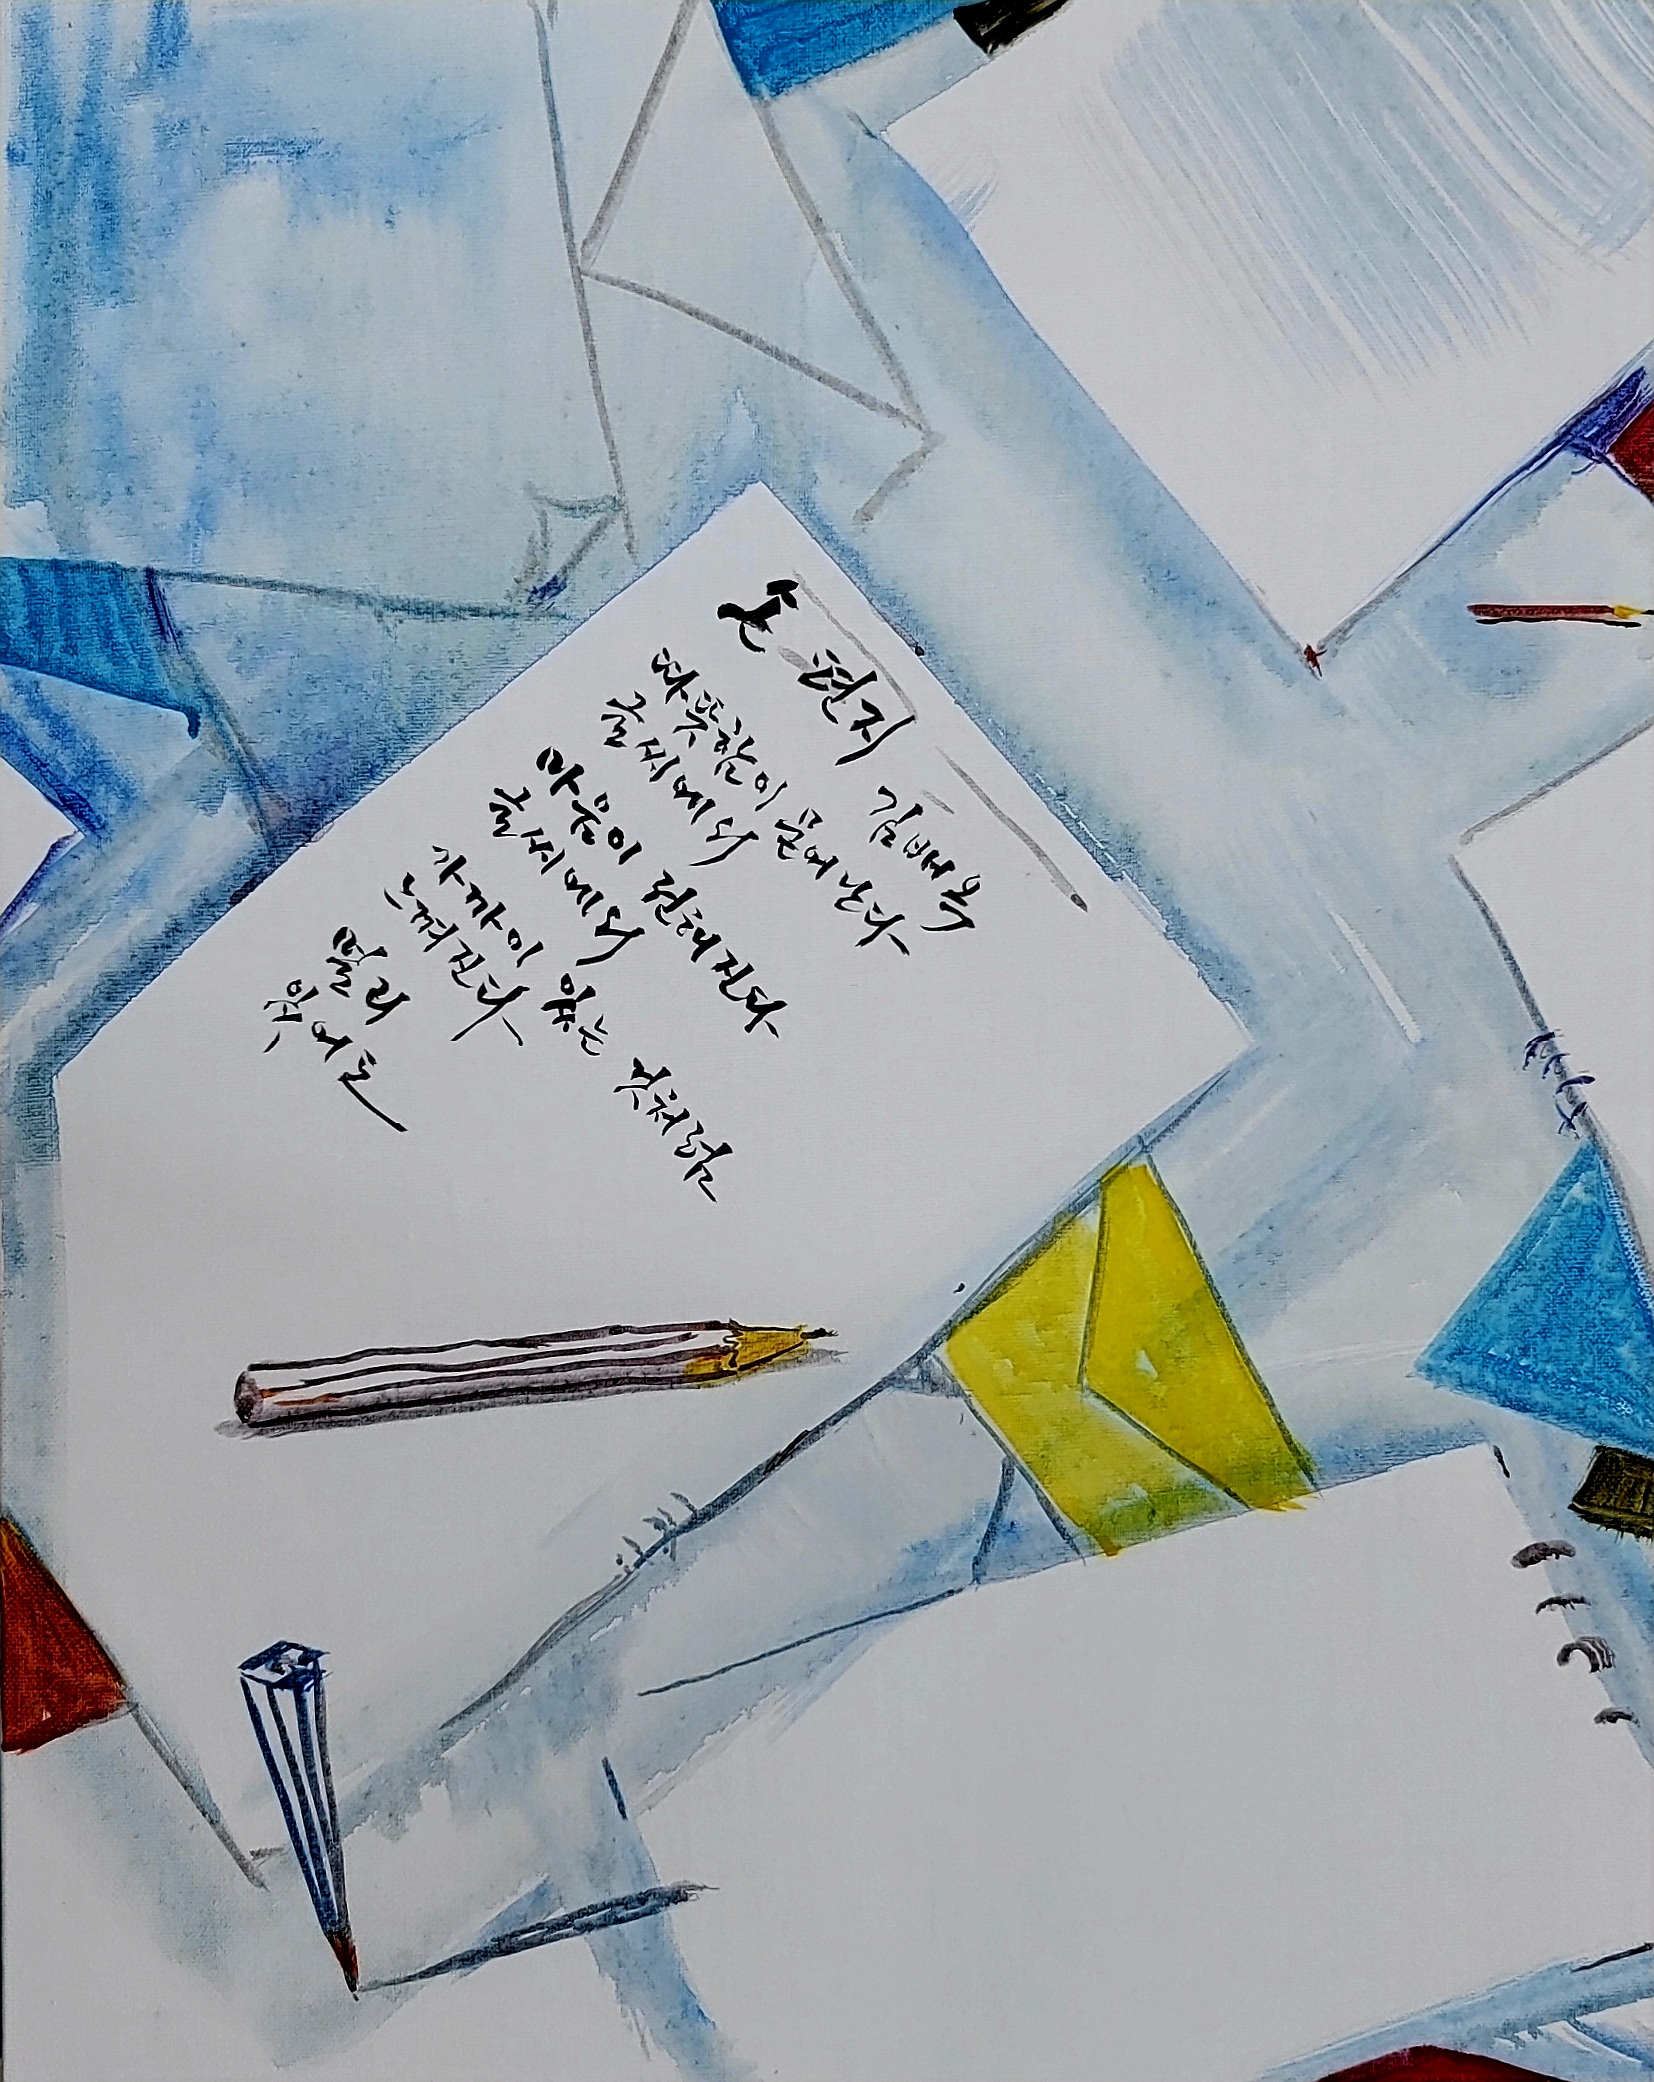 손 편지
따뜻함이 묻어난다
글씨에서
마음이 전해진다
글씨에서
가까이 있는 것처럼
느껴진다
멀리
있어도